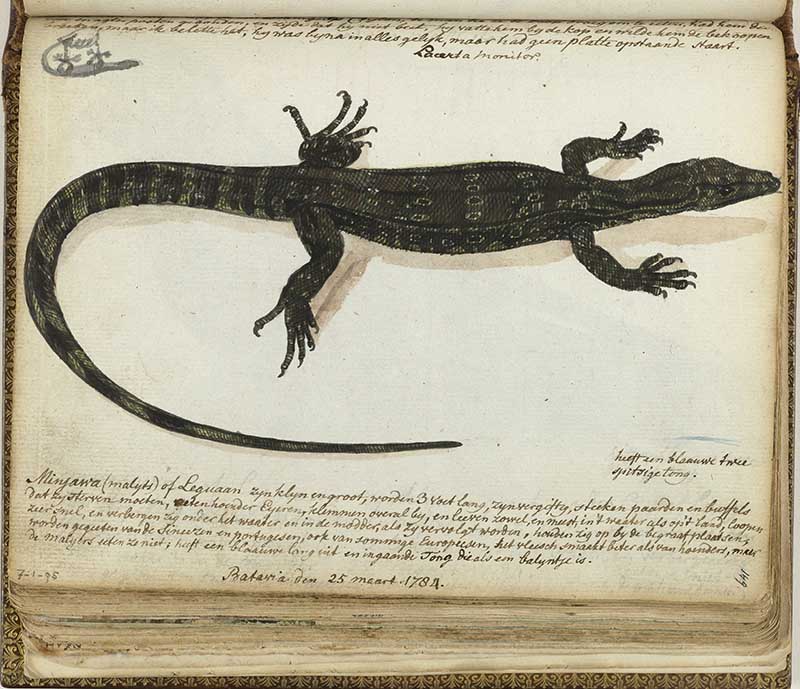 beet, hy vatte hem by de kop en wilde hem de bek open
maar ik belette het, hy was byna in alles gelyk, maar had geen platte opstaande staart.
Lacerta monitor.
heeft een blaauwe twee
spitsige tong.
Minjawa (malyts) of Leguaan zyn klyn en groot, worden 3 voet lang, zyn vergiftig, steeken paarden en buffels
dat zy sterven moeten, eeten hoender Eyeren, klimmen overal by, en leeven zowel, en meest, in't waater als op't land, loopen
zeer snel, en verbergen zig onder het waater en in de modder, als zy vervolgt worden, houden zig op by de begraafplaatsen,
worden gegeeten van de Sineezen en portugeesen, ook van sommige Europeesen, het vleesch smaakt beter als van hoenders, maar
de Malyers eeten ze niet; heeft een blaauwe lang uit en ingaande Tong die als een balyntje is.
Batavia den 25 maart 1784.
7-1-95
149